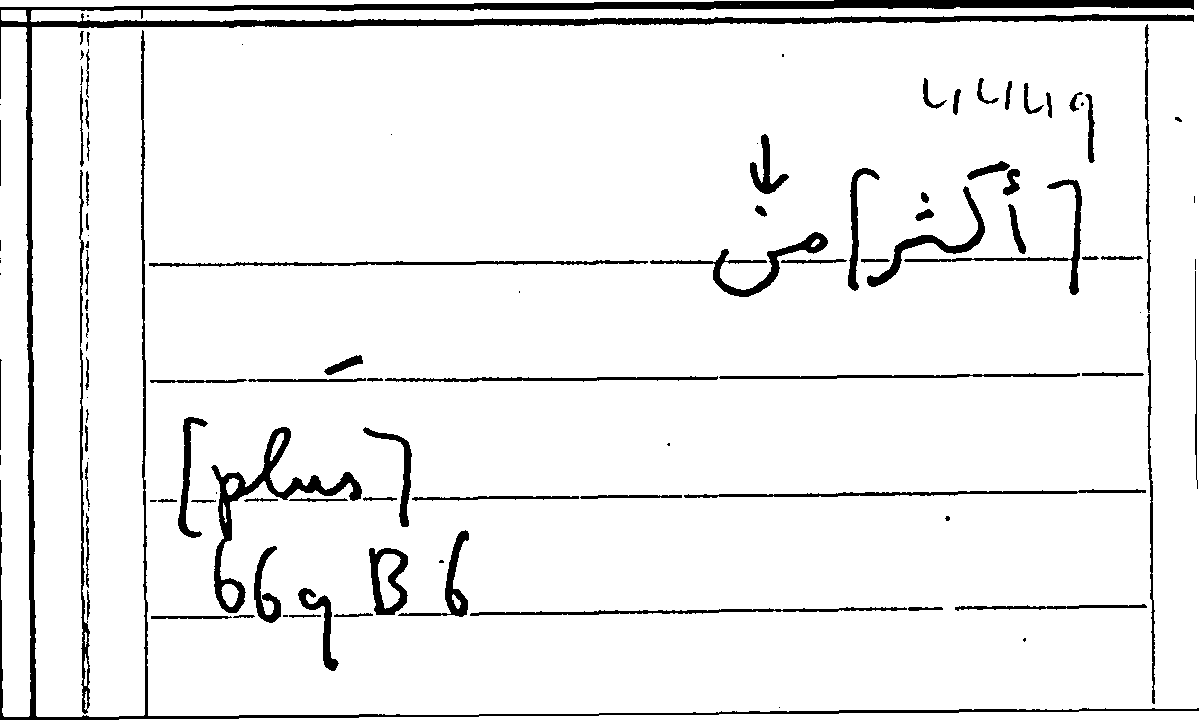 4449
[أكثر] من
[plus]
669 B 6